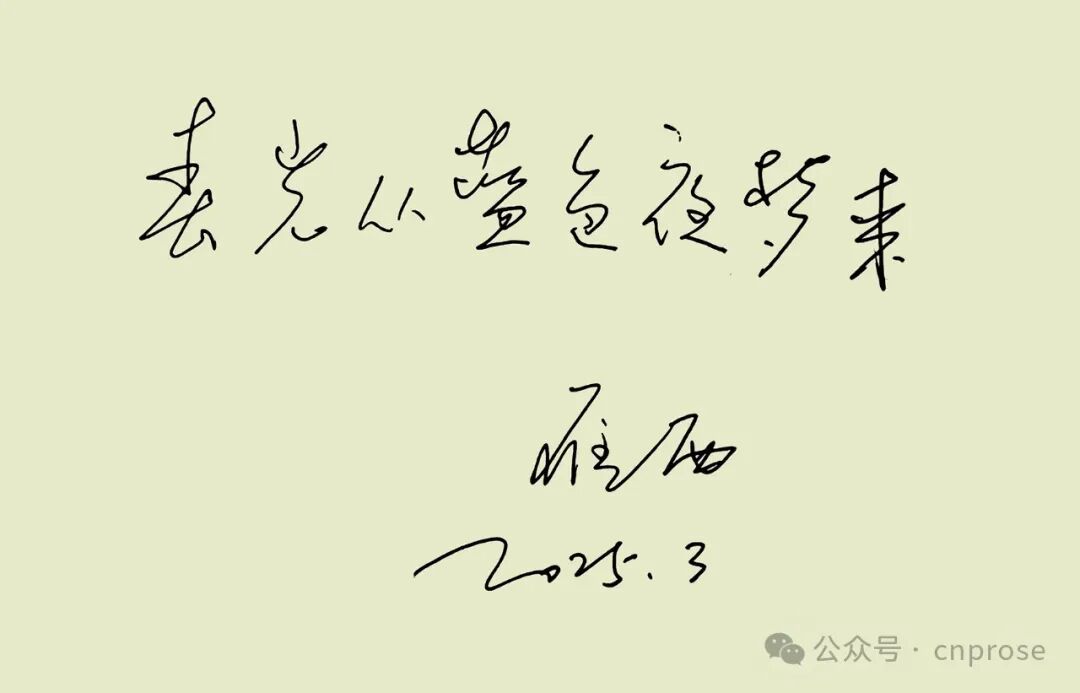 春光从蓝色夜梦来
雁西
2025.3
公众号 · cnprose